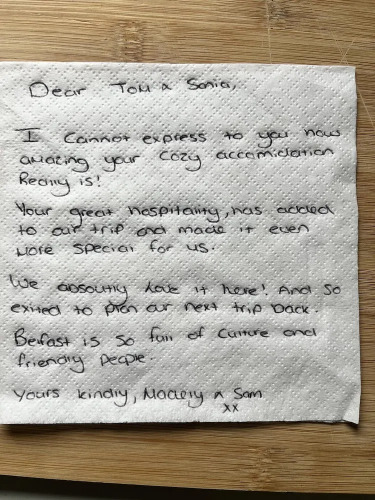 Dear Tom & Sonia,
I cannot express to you how
amazing your cozy accomidation
Really is!
Your great hospitality, has added
to our trip and made it even
more special for us.
We absoutly love it here! And so
exited to plan our next trip back.
Belfast is so full of culture and
friendly people.
Yours kindly, & Sam
xx